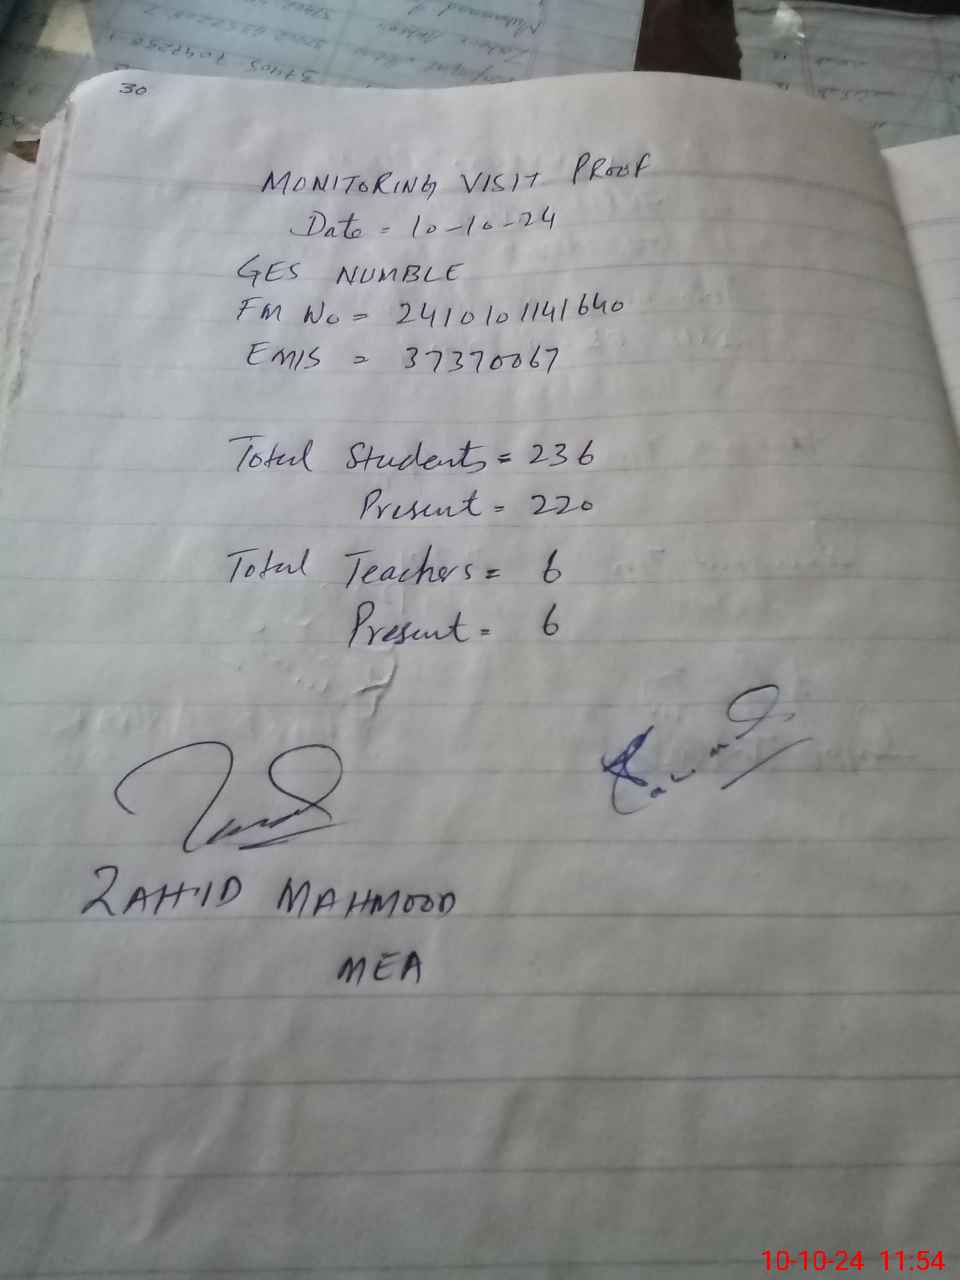 30
MONITORING VISIT PROOF
Date = 10-10-24
GES NUMBLE
FM No = 2410101141640
EMIS = 37370067
Total Students = 236
Present = 220
Total Teachers = 6
Present = 6
ZAHID MAHMOOD
MEA
10-10-24 11:54